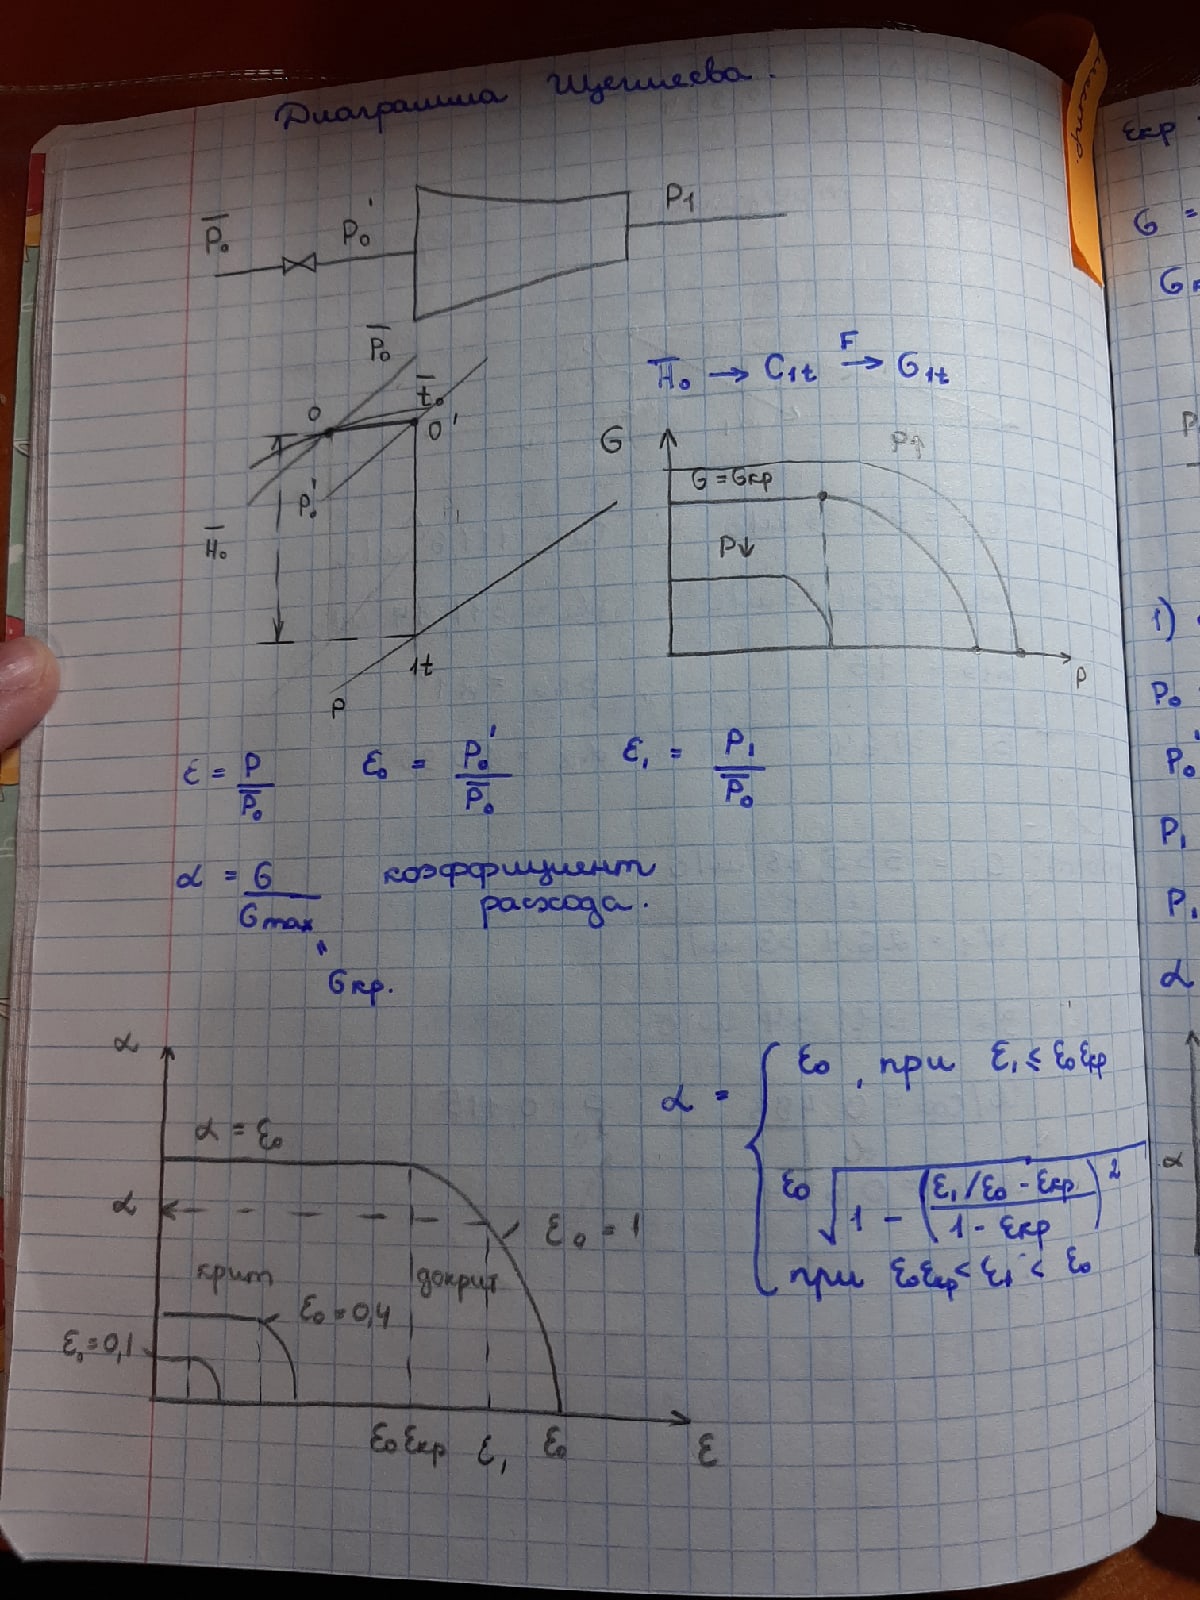 Диаграмма Щегляева.
P̅₀ P₀' P₁
P̅₀
H̅₀ → C₁t →(F) G₁t
t̅₀
0
0'
P₀'
H̅₀
1t
P
G
P↑
G = Gкр
P↓
P
ε = P/P̅₀ ε₀ = P₀'/P̅₀ ε₁ = P₁/P̅₀
α = G/Gmax коэффициент
расхода.
"
Gкр.
α
α = ε₀
α
ε₀ = 1
крит докрит
ε₀ = 0,4
ε₀ = 0,1
ε₀εкр ε₁ ε₀ ε
α = { ε₀, при ε₁ ≤ ε₀εкр
ε₀ √(1 - ((ε₁/ε₀ - εкр)/(1 - εкр))²)
при ε₀εкр < ε₁ < ε₀
εкр
G =
1)
P₀
P₀'
P₁
P₁
α
α